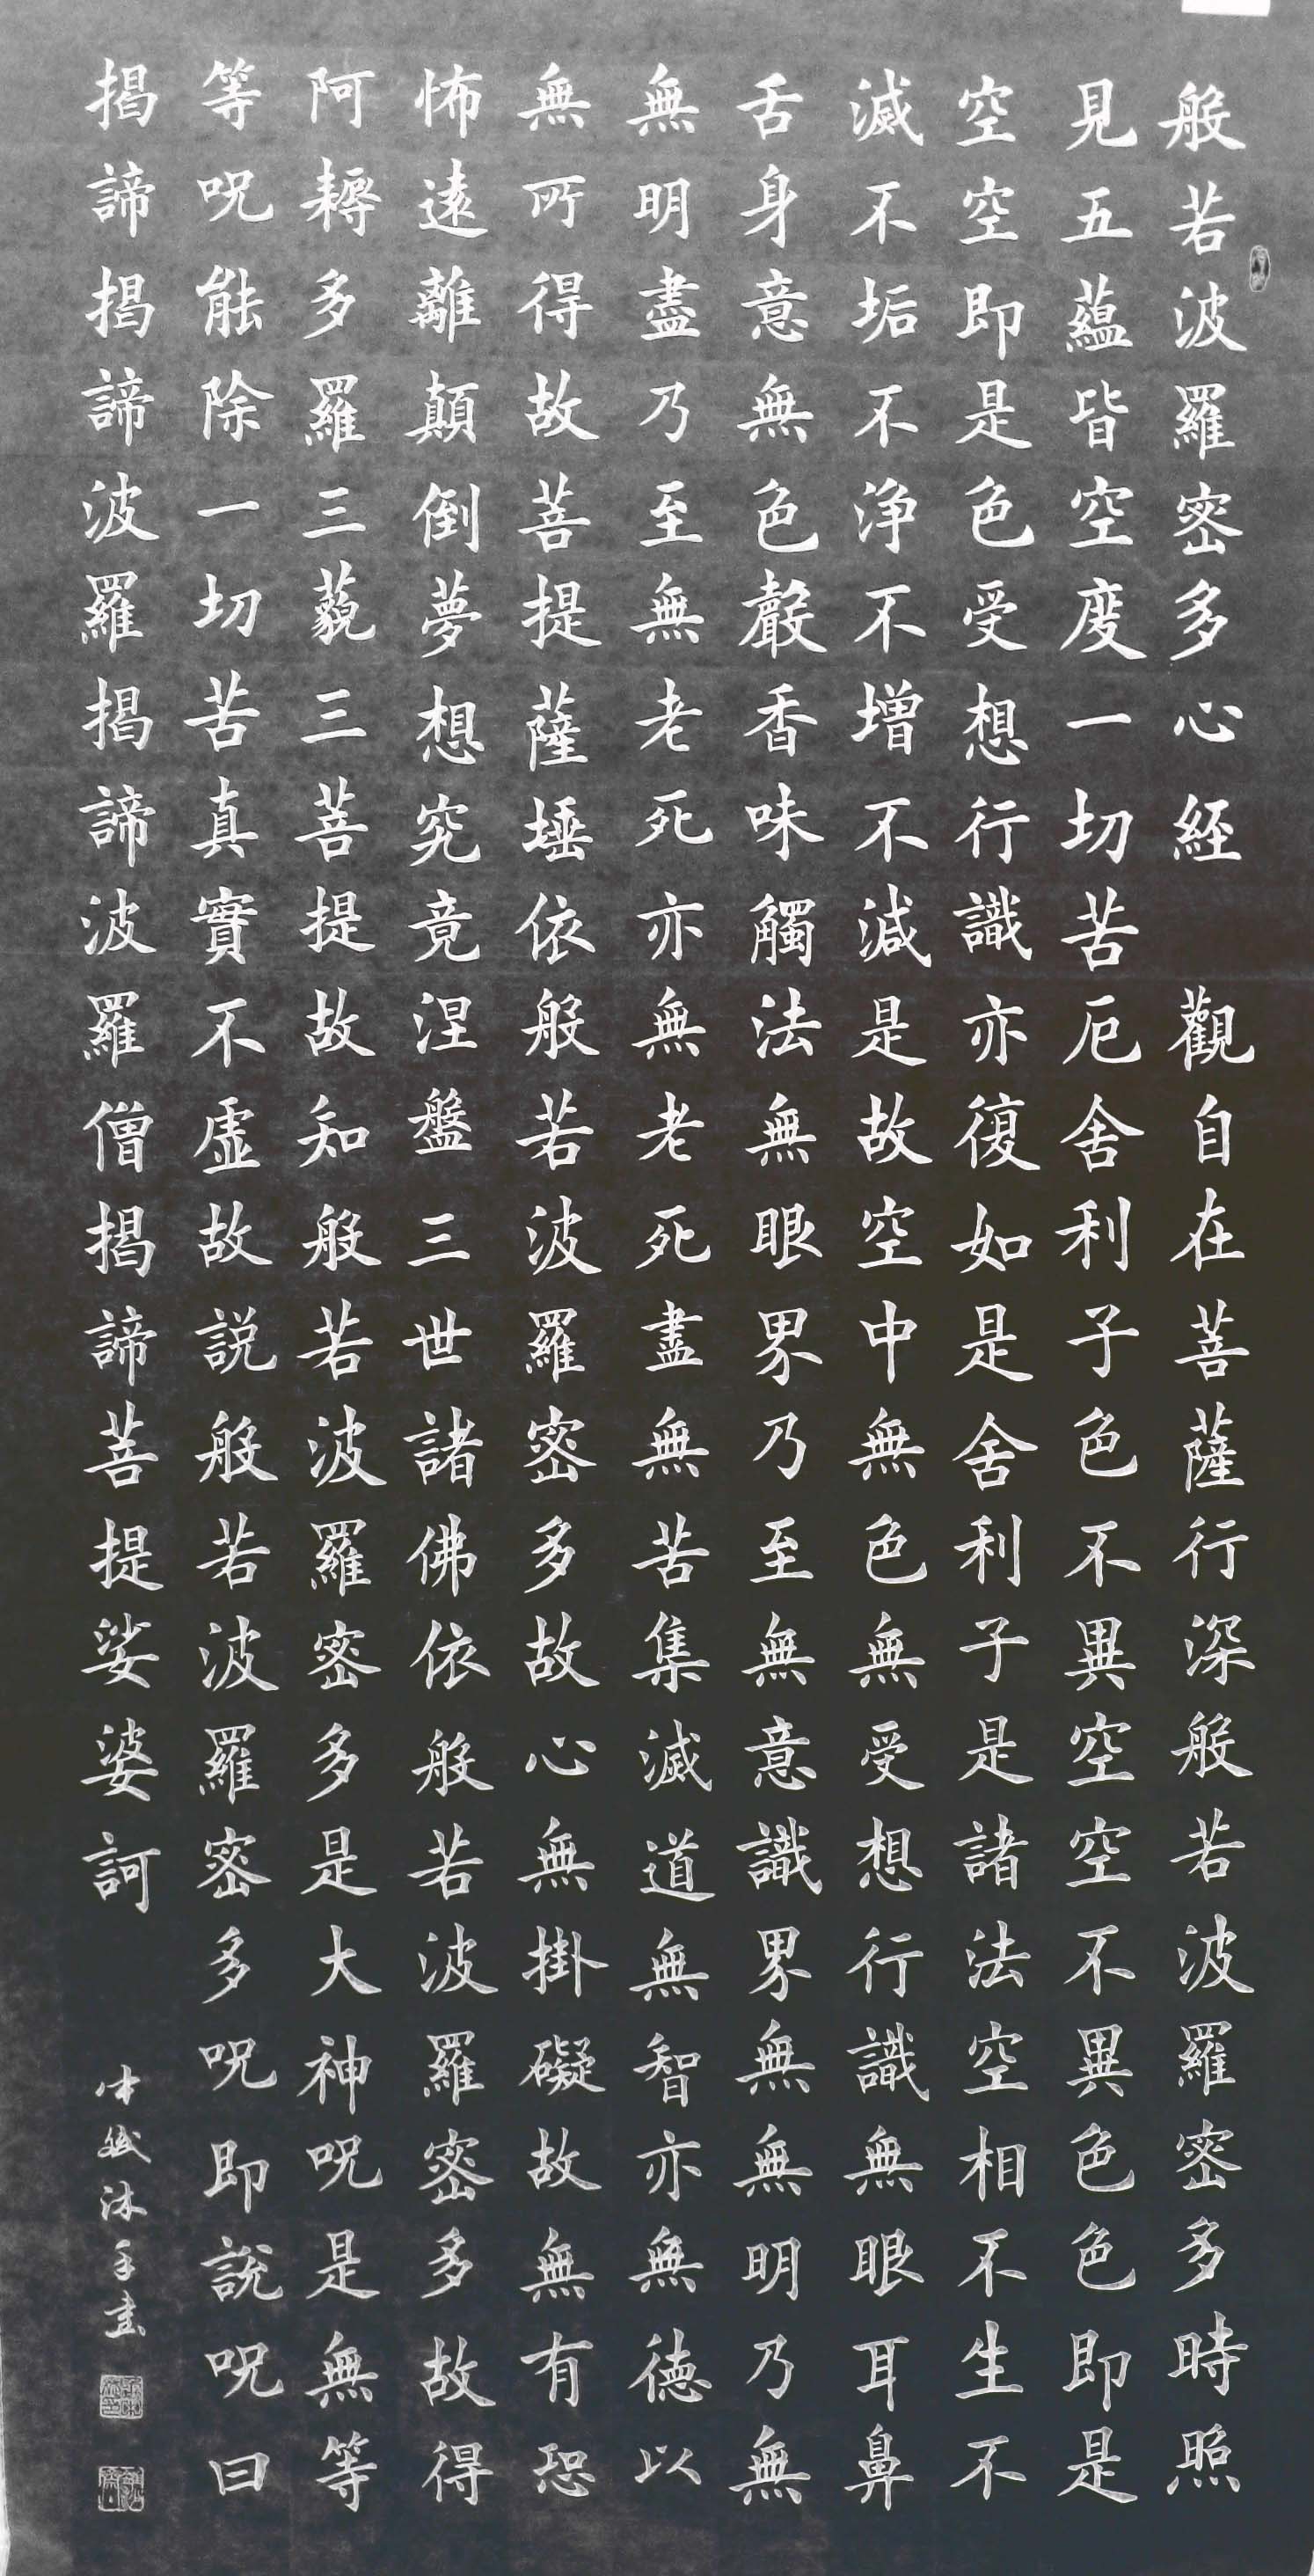 般若波羅密多心經 觀自在菩薩行深般若波羅密多時照
見五蘊皆空度一切苦厄舍利子色不異空空不異色色即是
空空即是色受想行識亦復如是舍利子是諸法空相不生不
滅不垢不淨不增不減是故空中無色無受想行識無眼耳鼻
舌身意無色聲香味觸法無眼界乃至無意識界無無明乃無
無明盡乃至無老死亦無老死盡無苦集滅道無智亦無德以
無所得故菩提薩埵依般若波羅密多故心無掛礙故無有恐
怖遠離顛倒夢想究竟涅盤三世諸佛依般若波羅密多故得
阿耨多羅三藐三菩提故知般若波羅密多是大神呪是無等
等呪能除一切苦真實不虛故説般若波羅密多呪即說呪曰
揭諦揭諦波羅揭諦波羅僧揭諦菩提娑婆訶
沐手書